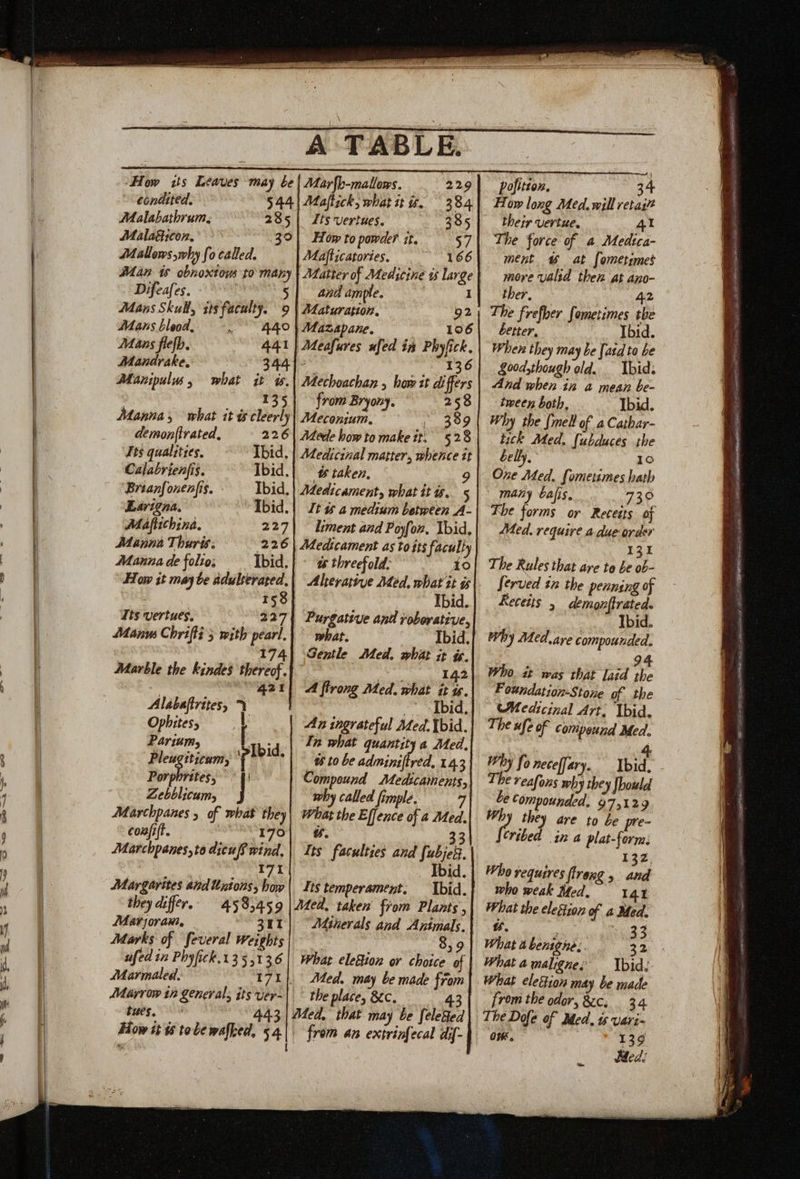 A TABLE.
How its Leaves may be
condited. 544
Malabathrum. 285
Malacticon. 30
Mallows,why ſo called.
Man is obnoxious to many
Diſeaſes. 5
Mans Skull, its faculty. 9
Mans blood. 440
Mans fleſh. 441
Mandrake. 344
Manipulus, what it is.
135
Manna, what it is cleerly
demonſtrated. 226
Its qualities. Ibid.
Calabrienſis. Ibid.
Brianſonenſis. Ibid.
Larigna. Ibid.
Maſtichina. 227
Manna Thuris. 226
Manna de folio. Ibid.
How it may be adulterated.
158
Its vertues. 227
Manus Chriſti, with pearl.
174
Marble the kindes thereof.
421
Alabaſtrites,
Ophites,
Parium,
Pleugiticum,
Porphrites,
Zebblicum,
Ibid.
Marchpanes, of what they
conſiſt. 170
Marchpanes,to dicuſſ wind.
171
Margarites and Unions, how
they differ. 458,459
Marjoram. 311
Marks of ſeveral Weights
uſed in Phyſick.135,136
Marmaled. 171
Marrow in general, its ver-
tues. 443
How it is to be waſhed. 54
Marſh-mallows. 229
Maſtick, what it is. 384
Its vertues. 385
How to powder it. 57
Maſticatories. 166
Matter of Medicine is large
and ample. 1
Maturation. 92
Mazapane. 106
Meaſures uſed in Phyſick.
136
Mechoachan, how it differs
from Bryony. 258
Meconium. 389
Mede how to make it. 528
Medicinal matter, whence it
is taken. 9
Medicament, what it is. 5
It is a medium between A-
liment and Poyſon. Ibid.
Medicament as to its faculty
is threefold: 10
Alterative Med. what it is
Ibid.
Purgative and roborative,
what. Ibid.
Gentle Med. what it is.
142
A ſtrong Med. what it is.
Ibid.
An ingrateful Med. Ibid.
In what quantity a Med.
is to be adminiſtred. 143
Compound Medicaments,
why called ſimple. 7
What the Eſſence of a Med.
is. 33
Its faculties and ſubject.
Ibid.
Its temperament. Ibid.
Med. taken from Plants,
Minerals and Animals.
8,9
What election or choice of
Med. may be made from
the place, &c. 43
Med. that may be ſelected
from an extrinſecal diſ-
poſition. 34
How long Med. will retain
their vertue. 41
The force of a Medica-
ment is at ſometimes
more valid then at ano-
ther. 42
The freſher ſometimes the
better. Ibid.
When they may be ſaid to be
good,though old. Ibid.
And when in a mean be-
tween both. Ibid.
Why the ſmell of a Cathar-
tick Med. ſubduces the
belly. 10
One Med. ſometimes hath
many baſis. 730
The forms or Receits of
Med. require a due order
131
The Rules that are to be ob-
ſerved in the penning of
Receits, demonſtrated.
Ibid.
Why Med.are compounded.
94
Who it was that laid the
Foundation-Stone of the
Medicinal Art. Ibid.
The uſe of compound Med.
4
Why ſo neceſſary. Ibid.
The reaſons why they ſhould
be compounded. 97,129
Why they are to be pre-
ſcribed in a plat-form.
132
Who requires ſtrong, and
who weak Med. 141
What the election of a Med.
is. 33
What a benigne. 32
What a maligne. Ibid.
What election may be made
from the odor, &c. 34
The Doſe of Med. is vari-
ous. 139
Med: